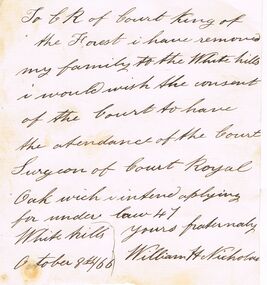 To C R of Court King of
the Forest i have removed
my family to the White hills
i would wish the consent
of the Court to have
the atendance of the Court
Surgeon of Court Royal
Oak wich i intend applying
for under law 47
White hills yours fraternaly
October 8th/66 William H Nicholas